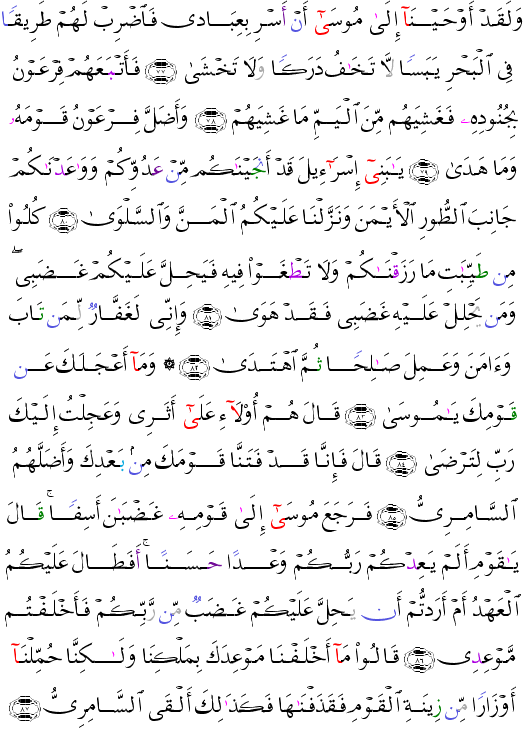 وَلَقَدْ أَوْحَيْنَآ إِلَىٰ مُوسَىٰٓ أَنْ أَسْرِ بِعِبَادِى فَٱضْرِبْ لَهُمْ طَرِيقًا
فِى ٱلْبَحْرِ يَبَسًا لَّا تَخَـٰفُ دَرَكًا وَلَا تَخْشَىٰ ٧٧ فَأَتْبَعَهُمْ فِرْعَوْنُ
بِجُنُودِهِۦ فَغَشِيَهُم مِّنَ ٱلْيَمِّ مَا غَشِيَهُمْ ٧٨ وَأَضَلَّ فِرْعَوْنُ قَوْمَهُۥ
وَمَا هَدَىٰ ٧٩ يَـٰبَنِىٓ إِسْرَٰٓءِيلَ قَدْ أَنجَيْنَـٰكُم مِّنْ عَدُوِّكُمْ وَوَٰعَدْنَـٰكُمْ
جَانِبَ ٱلطُّورِ ٱلْأَيْمَنَ وَنَزَّلْنَا عَلَيْكُمُ ٱلْمَنَّ وَٱلسَّلْوَىٰ ٨٠ كُلُوا۟
مِن طَيِّبَـٰتِ مَا رَزَقْنَـٰكُمْ وَلَا تَطْغَوْا۟ فِيهِ فَيَحِلَّ عَلَيْكُمْ غَضَبِى ۖ
وَمَن يَحْلِلْ عَلَيْهِ غَضَبِى فَقَدْ هَوَىٰ ٨١ وَإِنِّى لَغَفَّارٌ لِّمَن تَابَ
وَءَامَنَ وَعَمِلَ صَـٰلِحًا ثُمَّ ٱهْتَدَىٰ ٨٢ ۞ وَمَآ أَعْجَلَكَ عَن
قَوْمِكَ يَـٰمُوسَىٰ ٨٣ قَالَ هُمْ أُو۟لَآءِ عَلَىٰٓ أَثَرِى وَعَجِلْتُ إِلَيْكَ
رَبِّ لِتَرْضَىٰ ٨٤ قَالَ فَإِنَّا قَدْ فَتَنَّا قَوْمَكَ مِنۢ بَعْدِكَ وَأَضَلَّهُمُ
ٱلسَّامِرِىُّ ٨٥ فَرَجَعَ مُوسَىٰٓ إِلَىٰ قَوْمِهِۦ غَضْبَـٰنَ أَسِفًا ۚ قَالَ
يَـٰقَوْمِ أَلَمْ يَعِدْكُمْ رَبُّكُمْ وَعْدًا حَسَنًا ۚ أَفَطَالَ عَلَيْكُمُ
ٱلْعَهْدُ أَمْ أَرَدتُّمْ أَن يَحِلَّ عَلَيْكُمْ غَضَبٌ مِّن رَّبِّكُمْ فَأَخْلَفْتُم
مَّوْعِدِى ٨٦ قَالُوا۟ مَآ أَخْلَفْنَا مَوْعِدَكَ بِمَلْكِنَا وَلَـٰكِنَّا حُمِّلْنَآ
أَوْزَارًا مِّن زِينَةِ ٱلْقَوْمِ فَقَذَفْنَـٰهَا فَكَذَٰلِكَ أَلْقَى ٱلسَّامِرِىُّ ٨٧